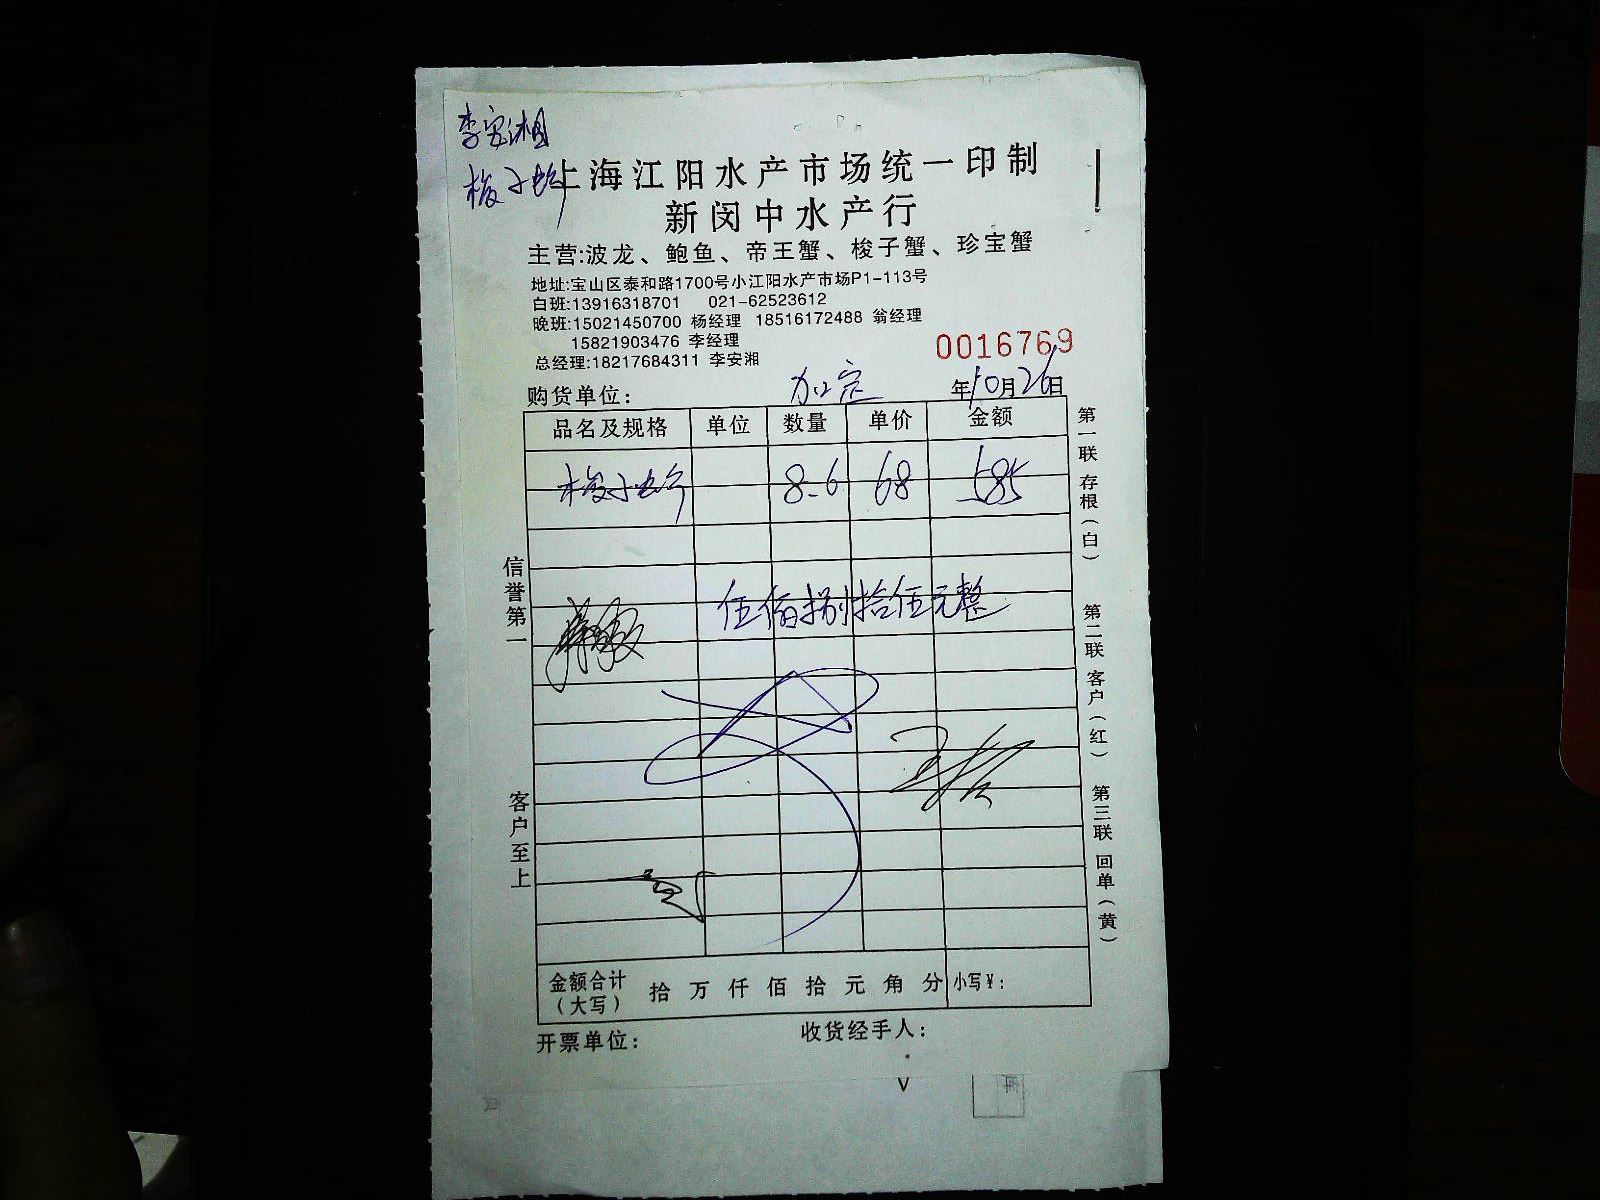 李安湘
梭子蟹
上海江阳水产市场统一印制
新闵中水产行
主营:波龙、鲍鱼、帝王蟹、梭子蟹、珍宝蟹
地址:宝山区泰和路1700号小江阳水产市场P1-113号
白班:13916318701 021-62523612
晚班:15021450700 杨经理 18516172488 翁经理
15821903476 李经理
总经理:18217684311 李安湘
0016769
购货单位: 加定 年10月26日
品名及规格 单位 数量 单价 金额
梭子蟹 8-6 68 585
伍佰捌拾伍元整
金额合计(大写) 拾 万 仟 佰 拾 元 角 分 小写¥:
开票单位: 收货经手人:
信誉第一
客户至上
第一联 存根(白)
第二联 客户(红)
第三联 回单(黄)